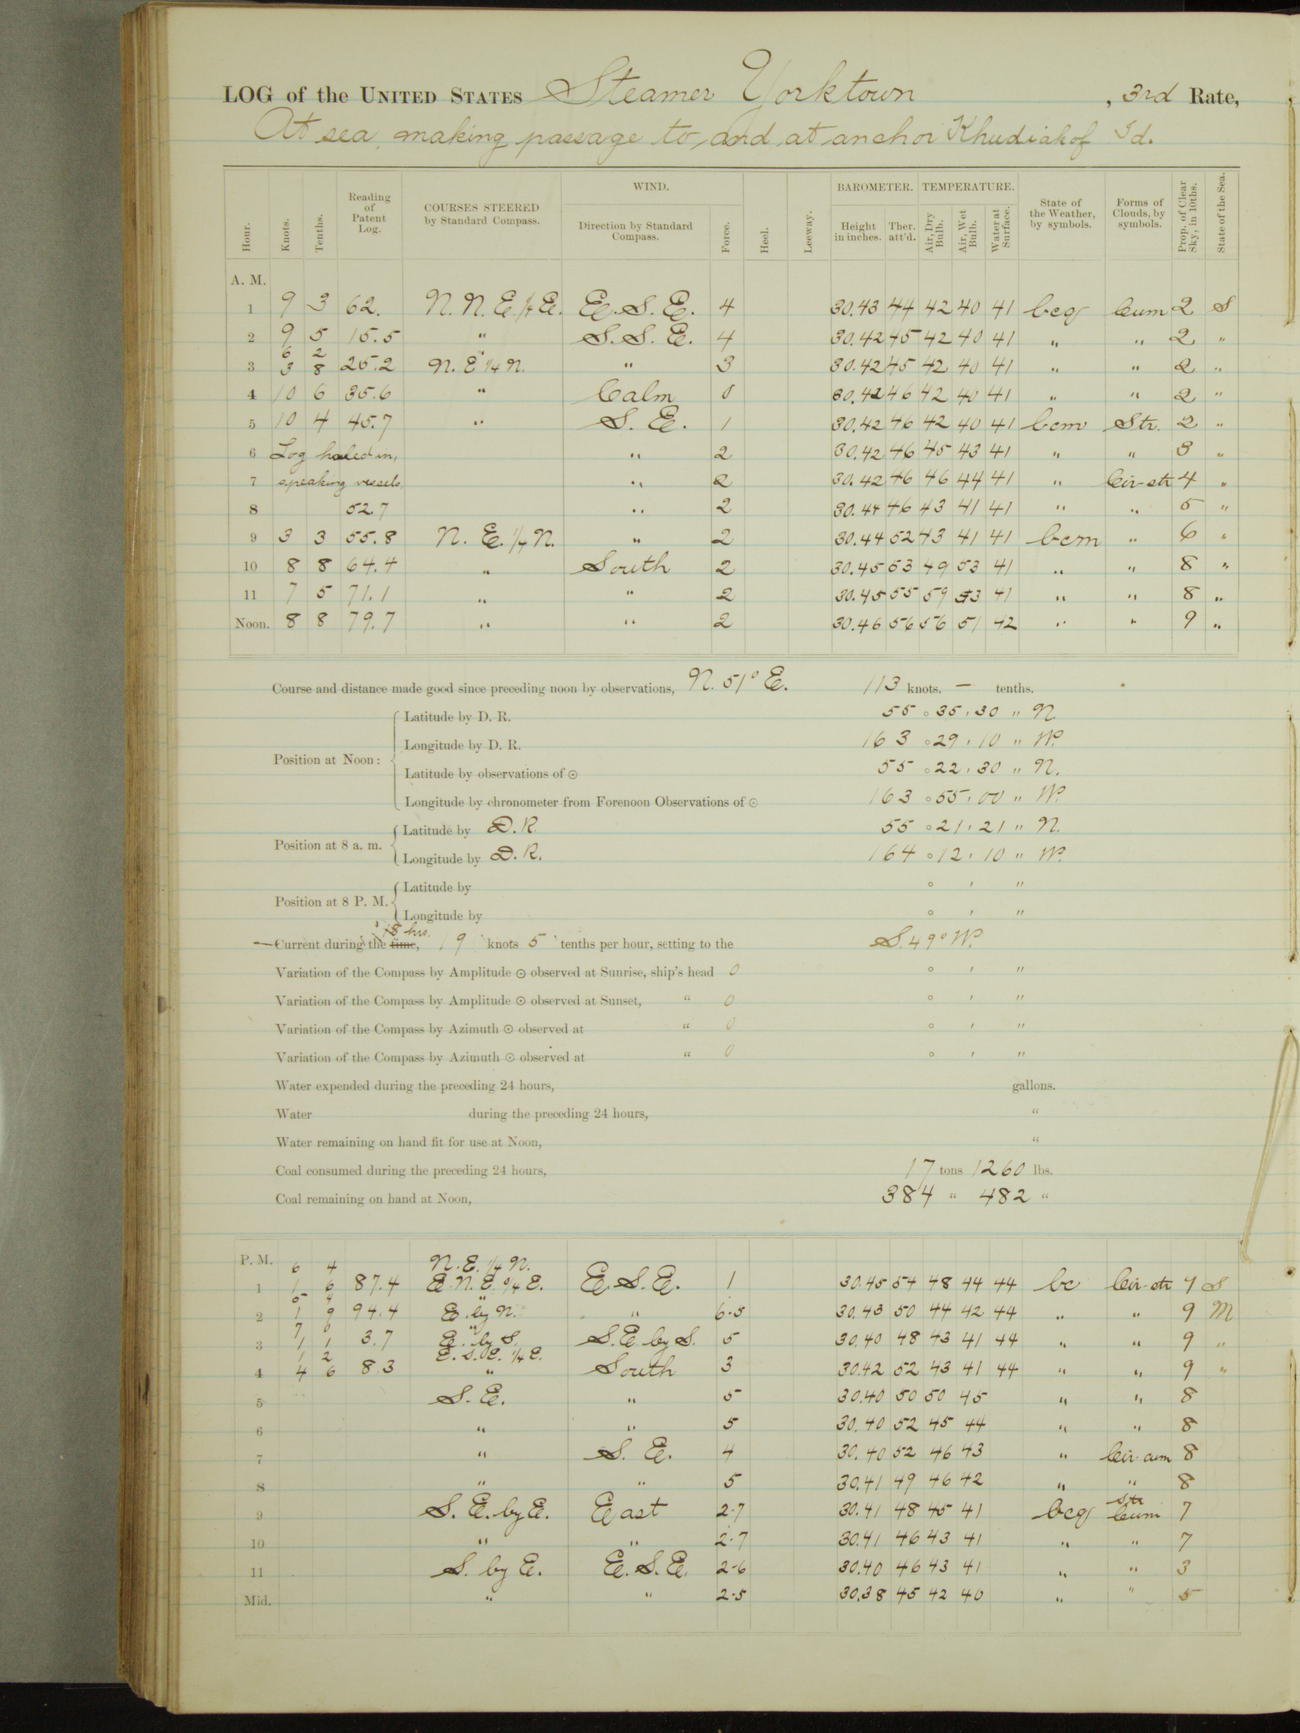 LOG of the UNITED STATES Steamer Yorktown, 3rd Rate,
At sea, making passage to, and at anchor Khudiakof Id.
Hour. Knots. Tenths. Reading of Patent Log. COURSES STEERED by Standard Compass. WIND. Direction by Standard Compass. Force. Heel. Leeway. BAROMETER. Height in inches. Ther. att'd. TEMPERATURE. Air, Dry Bulb. Air, Wet Bulb. Water at Surface. State of the Weather, by symbols. Forms of Clouds, by symbols. Prop. of Clear Sky, in 10ths. State of the Sea.
A. M.
1 9 3 62. N.N.E.1/4E. E.S.E. 4 30.43 44 42 40 41 bcg Cum 2 S
2 9 5 15.5 " S.S.E. 4 30.42 45 42 40 41 " " 2 "
6 2
3 3 8 25.2 N.E 1/4 N. " 3 30.42 45 42 40 41 " " 2 "
4 10 6 35.6 " Calm 0 30.42 46 42 40 41 " " 2 "
5 10 4 45.7 " S.E. 1 30.42 46 42 40 41 bcm Str. 2 "
6 Log haled in, " 2 30.42 46 45 43 41 " " 3 "
7 speaking vessels " 2 30.42 46 46 44 41 " Cir-str 4 "
8 52.7 " 2 30.44 46 43 41 41 " " 5 "
9 3 3 55.8 N. E. 1/4 N. " 2 30.44 52 43 41 41 bcm " 6 "
10 8 8 64.4 " South 2 30.45 53 49 53 41 " " 8 "
11 7 5 71.1 " " 2 30.45 55 59 53 41 " " 8 "
Noon. 8 8 79.7 " " 2 30.46 56 56 51 42 " " 9 "
Course and distance made good since preceding noon by observations, N. 51° E. 113 knots. — tenths.
Position at Noon:
Latitude by D. R. 55 ° 35 ' 30 " N.
Longitude by D. R. 163 ° 29 ' 10 " W.
Latitude by observations of ⊙ 55 ° 22 ' 30 " N.
Longitude by chronometer from Forenoon Observations of ⊙ 163 ° 55 ' 00 " W.
Position at 8 a. m.
Latitude by D.R. 55 ° 21 ' 21 " N.
Longitude by D.R. 164 ° 12 ' 10 " W.
Position at 8 P. M.
Latitude by ° ' "
Longitude by ° ' "
18 hrs.
Current during the time, 19 knots 5 tenths per hour, setting to the S. 49° W.
Variation of the Compass by Amplitude ⊙ observed at Sunrise, ship's head 0 ° ' "
Variation of the Compass by Amplitude ⊙ observed at Sunset, " 0 ° ' "
Variation of the Compass by Azimuth ⊙ observed at " 0 ° ' "
Variation of the Compass by Azimuth ⊙ observed at " 0 ° ' "
Water expended during the preceding 24 hours, gallons.
Water during the preceding 24 hours, "
Water remaining on hand fit for use at Noon, "
Coal consumed during the preceding 24 hours, 17 tons 1260 lbs.
Coal remaining on hand at Noon, 384 " 482 "
P. M.
6 4 N.E. 1/4 N.
1 1 6 87.4 E.N.E. 3/4 E. E.S.E. 1 30.45 54 48 44 44 bc Cir-str 7 S
5 "
2 1 9 94.4 E. by N. " 6-5 30.43 50 44 42 44 " " 9 M
7 0 "
3 1 1 3.7 E. by S. S.E. by S. 5 30.40 48 43 41 44 " " 9 "
1 2 E.S.E. 1/4 E.
4 4 6 8.3 " South 3 30.42 52 43 41 44 " " 9 "
5 S.E. " 5 30.40 50 50 45 " " 8
6 " " 5 30.40 52 45 44 " " 8
7 " S. E. 4 30.40 52 46 43 " Cir-cum 8
8 " " 5 30.41 49 46 42 " " 8
9 S.E. by E. East 2-7 30.41 48 45 41 bcg Str Cum 7
10 " " 2-7 30.41 46 43 41 " " 7
11 S. by E. E.S.E. 2-6 30.40 46 43 41 " " 3
Mid. " " 2-5 30.38 45 42 40 " " 5